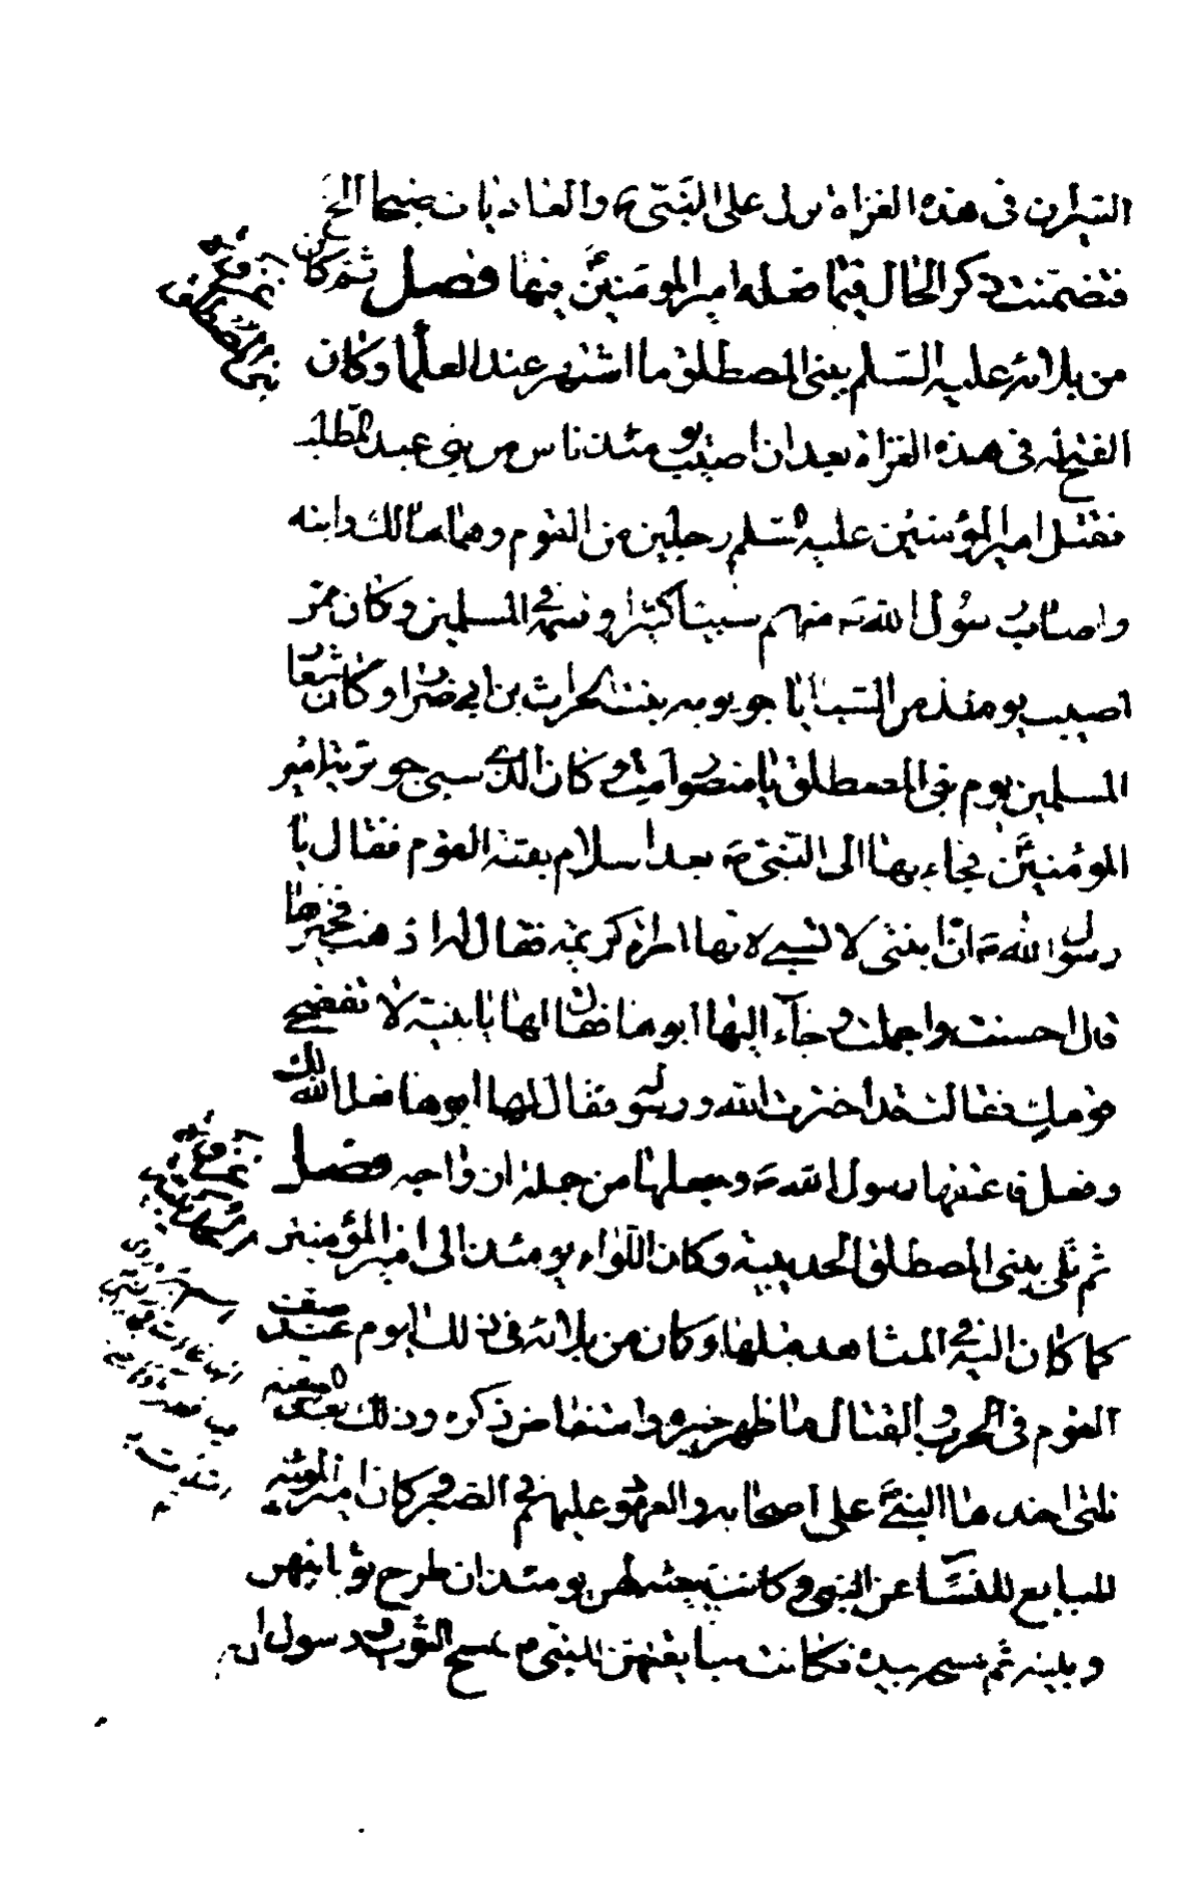 السيران فى هذه الغزاة نزل على النبى ء والعاديات ضبحا الخ
فتضمنت ذكر الحال فيما فعله امير المومنين فيها فصل ثم كان
من بلائه عليه السلم ببنى المصطلق ما اشتهر عند العلما وكان
الفتح له فى هذه الغزاة بعد ان اصيب يومئذ ناس من بنى عبد المطلب
فقتل امير المؤمنين عليه السلم رجلين من القوم وهما مالك وابنه
واصاب رسول الله ص منهم سبيا كثيرا وقسمه فى المسلمين وكان ممن
اصيب يومئذ من السبايا جويريه بنت الحراث بن ابي ضرار وكان شعار
المسلمين يوم بنى المصطلق يا منصور امت وكان الذى سبى جويرية امير
المومنين فجاء بها الى النبى ص بعد اسلام بقية القوم فقال يا
رسول الله ص ان ابنتى لا تسبى لانها امراة كريمة فقال له اذهب فخيرها
قال احسنت واجملت وجآء اليها ابوها فقال لها يا بنية لا تفضحى
قومك فقالت قد اخترت الله ورسوله فقال لها ابوها فعل الله بك
وفعل فاعتقها رسول الله ص وجعلها من جملة ازواجه فصل
ثم تلى بنى المصطلق الحديبية وكان اللواء يومئذ الى امير المؤمنين
كما كان اليه فى المشاهد قبلها وكان من بلائه فى ذلك اليوم عند صف
القوم فى الحرب والقتال ما ظهر خبره واستفاض ذكره وذلك بعد البيعة
التى اخذها النبى ص على اصحابه والعهود عليهم فى الصبر وكان امير المومنين
المبايع للنسآء عن النبى وكانت بيعته لهن يومئذ ان طرح ثوبا بينهن
وبينه ثم مسحه بيده فكانت مبايعتهن للنبى م بمسح الثوب ورسول الله